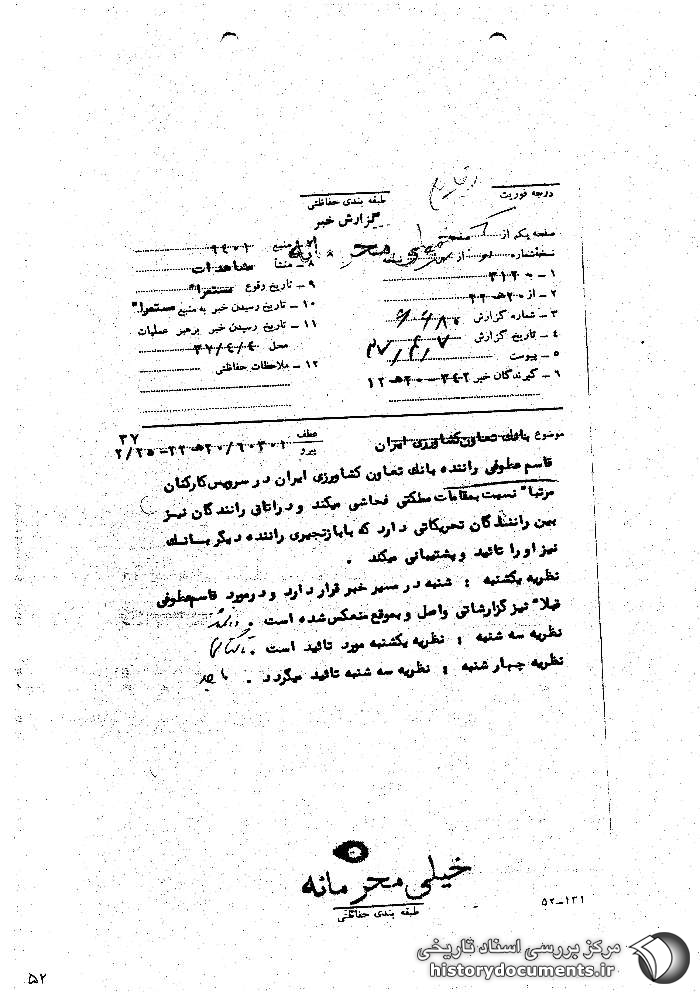 درجه فوریت
طبقه بندی حفاظتی
گزارش خبر
خیلی محرمانه
صفحه یکم از صفحه
نسخه شماره از
۱ – ۳۱۲۰
۲ – از ۲۰ ه‍ ۲۲
۳ – شماره گزارش
۴ – تاریخ گزارش ۳۷/۴/۷
۵ – پیوست
۶ – گیرندگان خبر ۳۴۲–۲۰ ه‍ ۱۲
۷ – منبع ۹۴۰۱
۸ – منشأ مشاهدات
۹ – تاریخ وقوع مستمراً
۱۰ – تاریخ رسیدن خبر به منبع مستمراً
۱۱ – تاریخ رسیدن خبر برهبر عملیات
محل ۳۷/۴/۴
۱۲ – ملاحظات حفاظتی
موضوع بانک تعاون کشاورزی ایران
عطف
پیرو
۳۷
قاسم عطوفی راننده بانک تعاون کشاورزی ایران در سرویس کارکنان
مرتباً نسبت بمقامات مملکتی فحاشی میکند و در اتاق رانندگان نیز
بین رانندگان تحریکاتی دارد که بابا زنجیری راننده دیگر بسانک
نیز او را تائید و پشتیبانی میکند .
نظریه یکشنبه : شنبه در مسیر خبر قرار دارد و در مورد قاسم عطوفی
قبلاً نیز گزارشاتی واصل و بموقع منعکس شده است .
نظریه سه شنبه : نظریه یکشنبه مورد تائید است .
نظریه چهار شنبه : نظریه سه شنبه تائید میگردد .
خیلی محرمانه
طبقه بندی حفاظتی
۵۲–۱۳۱
مرکز بررسی اسناد تاریخی
historydocuments.ir
۵۲